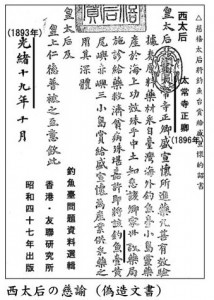 △慈禧太后將釣魚台賞給盛宣懷的詔書
西太后
太常寺正卿
(1896年)
皇太后
慈諭太常寺正卿盛宣懷所進藥丸甚有效驗
據奏原料藥材來自臺灣海外釣魚臺小島靈藥
產於海上功效殊乎中土知悉該卿家世設藥局
施診給藥救濟貧病殊堪嘉許即將該釣魚臺黃
尾嶼赤嶼三小島賞給盛宣懷為產業供採藥之
用其深體
皇太后及
皇上仁德普被之至意欽此
光緒十九年十月
(1893年)
釣魚臺問題資料選輯
香港・友聯研究所
昭和四十七年出版
西太后の慈諭（偽造文書）